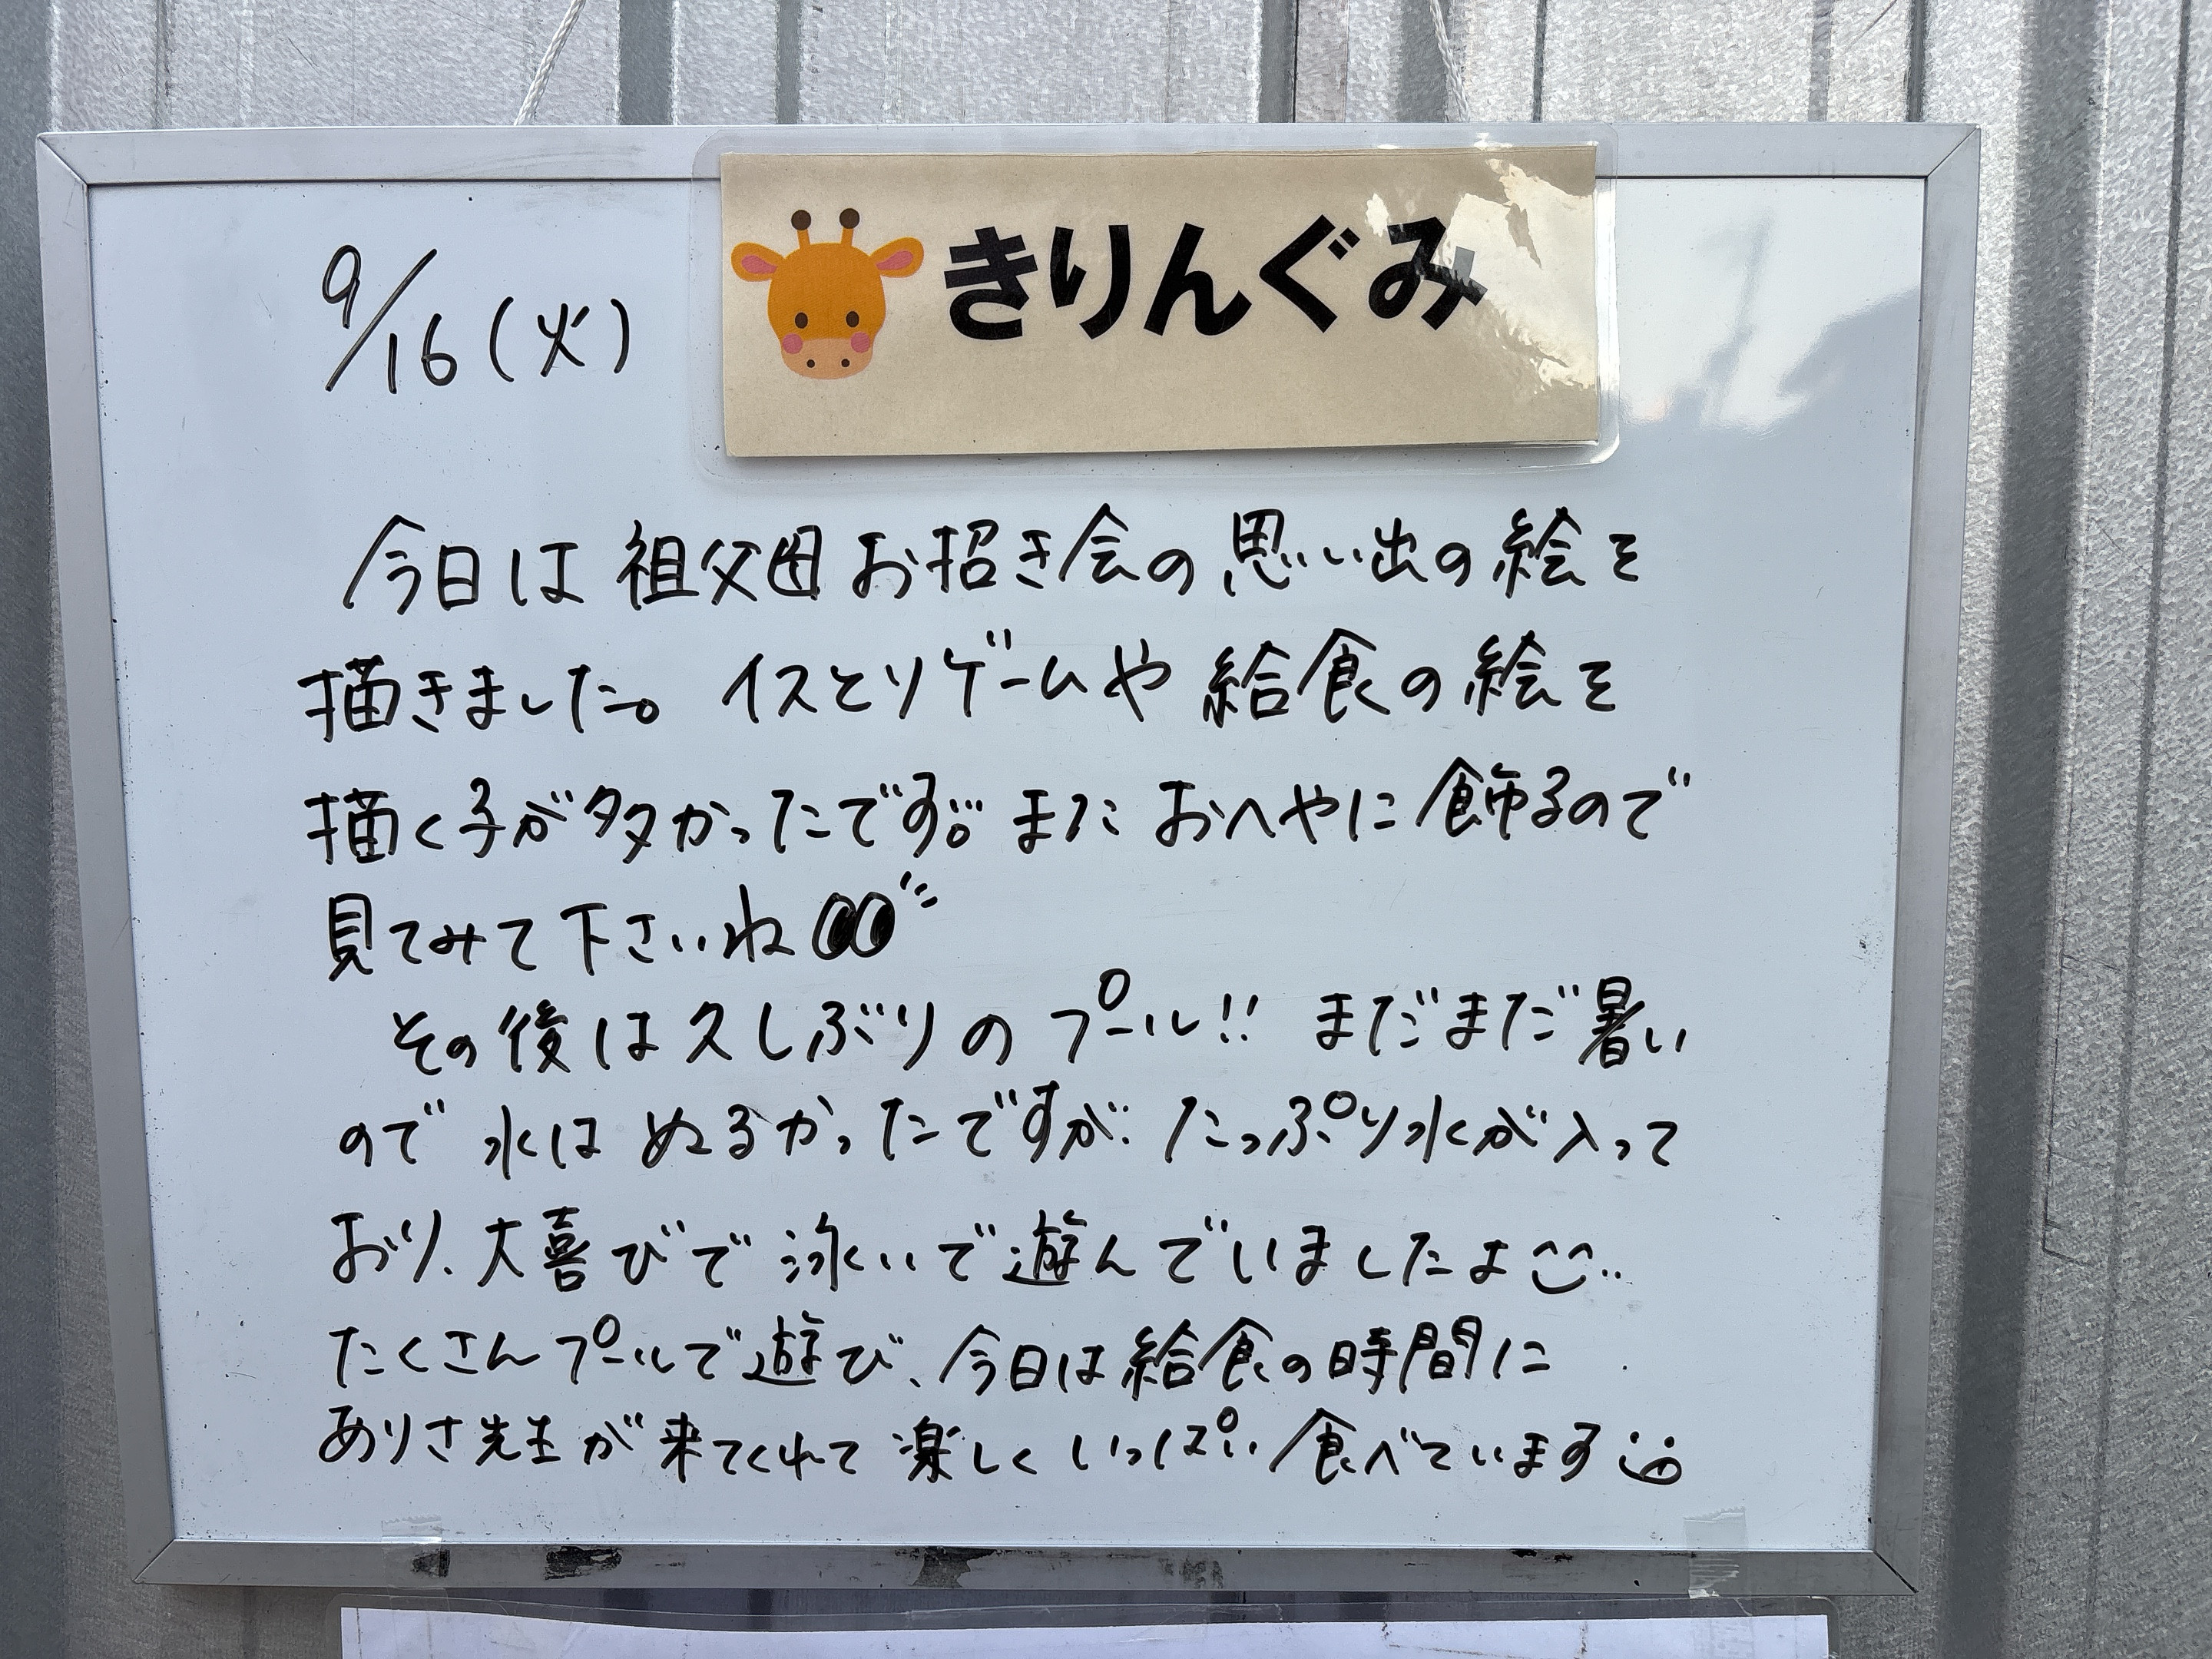 きりんぐみ
9/16(火)
今日は祖父母お招き会の思い出の絵を
描きました。イスとりゲームや給食の絵を
描く子が多かったです。またおへやに飾るので
見てみて下さいね
その後は久しぶりのプール!! まだまだ暑い
ので水はぬるかったですが、たっぷり水が入って
おり、大喜びで泳いで遊んでいましたよ
たくさんプールで遊び、今日は給食の時間に
ありさ先生が来てくれて楽しくいっぱい食べています